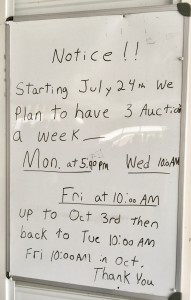 Notice!!
Starting July 24th we
Plan to have 3 Auction
a week —
Mon. at 5:00pm Wed 10:00AM
Fri at 10:00 AM
up to Oct 3rd then
back to Tue 10:00 AM
Fri 10:00AM in Oct.
Thank You